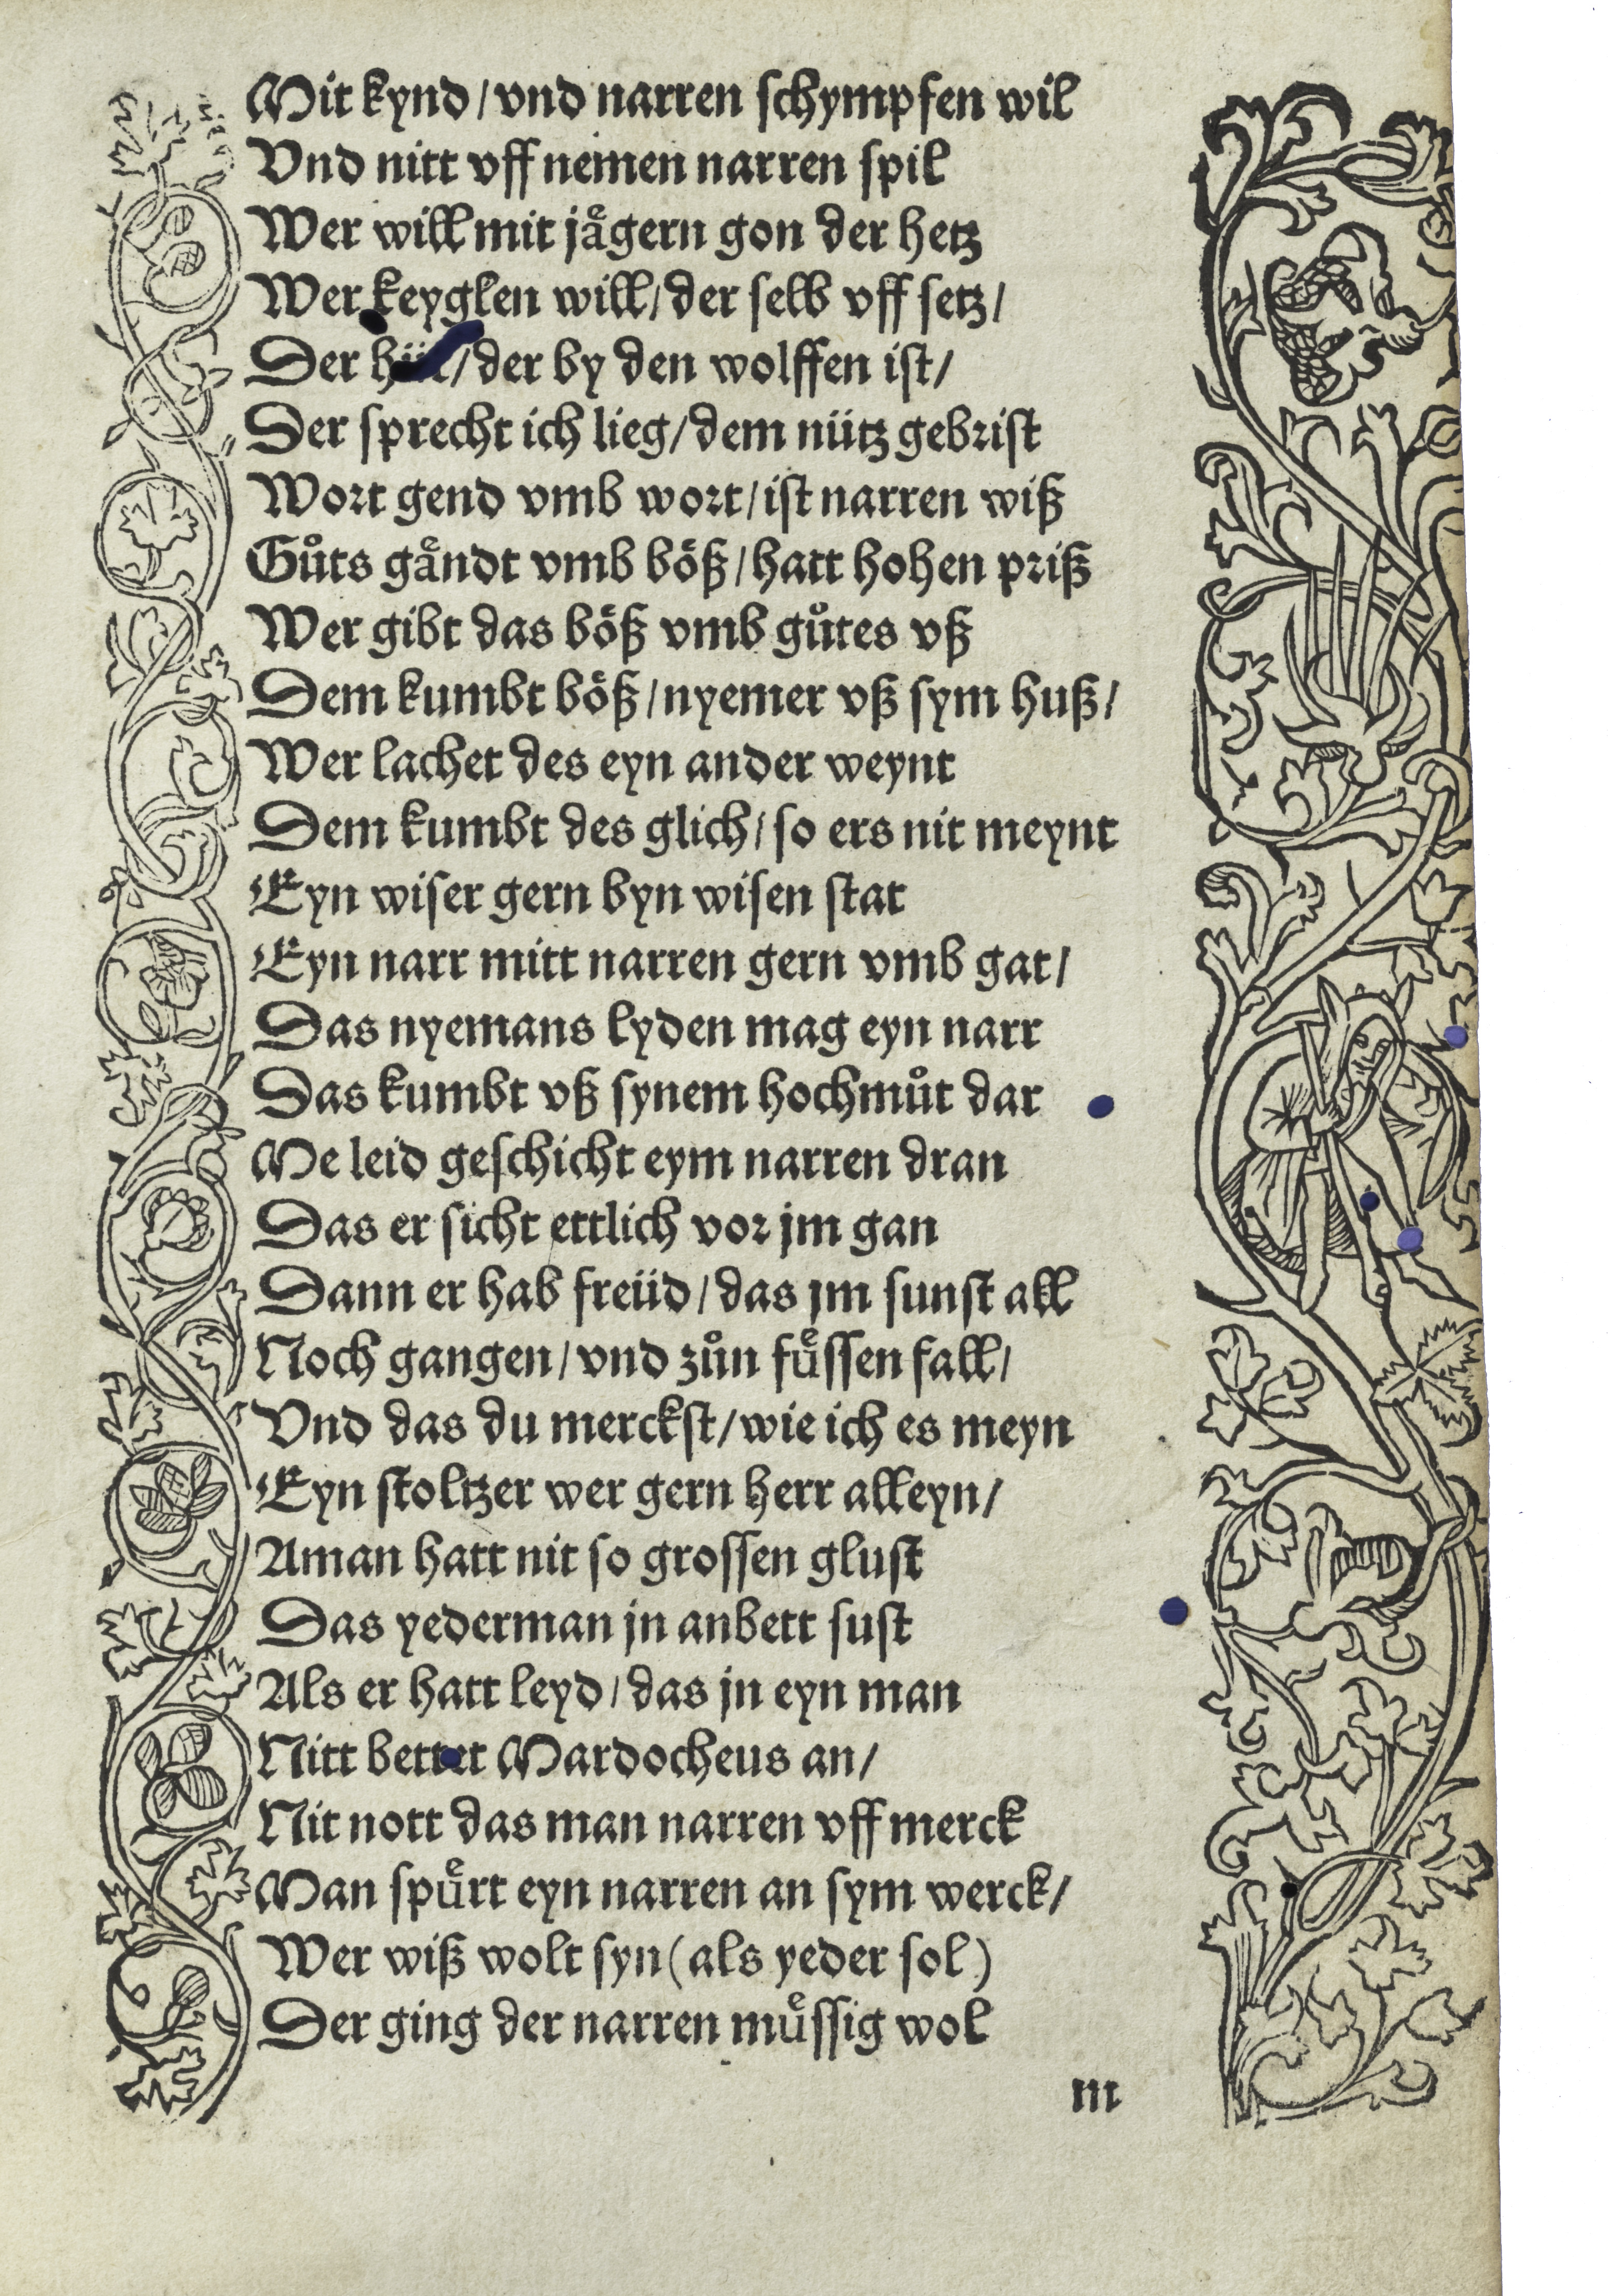 Mit kynd / vnd narren schympfen wil
Vnd nitt vff nemen narren spil
Wer will mit jaͤgern gon der hetz
Wer keyglen will / der selb vff setz /
Der / der by den wolffen ist /
Der sprecht ich lieg / dem nütz gebrist
Wort gend vmb wort / ist narren wiß
Guͦts gaͤndt vmb böß / hatt hohen priß
Wer gibt das böß vmb guͦtes vß
Dem kumbt böß / nyemer vß sym huß /
Wer lachet des eyn ander weynt
Dem kumbt des glich / so ers nit meynt
Eyn wiser gern byn wisen stat
Eyn narr mitt narren gern vmb gat /
Das nyemans lyden mag eyn narr
Das kumbt vß synem hochmuͦt dar
Me leid geschicht eym narren dran
Das er sicht ettlich vor jm gan
Dann er hab freüd / das jm sunst all
Noch gangen / vnd zuͦn fuͤssen fall /
Vnd das du merckst / wie ich es meyn
Eyn stoltzer wer gern herr alleyn /
Aman hatt nit so grossen glust
Das yederman jn anbett sust
Als er hatt leyd / das jn eyn man
Nitt bettet Mardocheus an /
Nit nott das man narren vff merck
Man spuͤrt eyn narren an sym werck /
Wer wiß wolt syn (als yeder sol)
Der ging der narren muͤssig wol
m